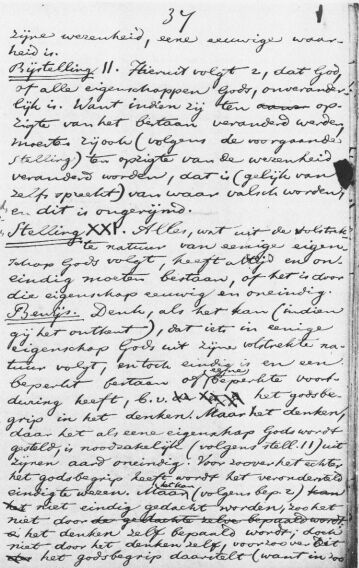 37
zijne wezenheid, eene eeuwige waar-
heid is.
Bijstelling II. Hieruit volgt 2, dat God,
of alle eigenschappen Gods, onverander-
lijk is. Want indien zij ten op-
zigte van het bestaan veranderd werden,
moesten zij ook (volgens de voorgaande
stelling) ten opzigte van de wezenheid
veranderd worden, dat is (gelijk van
zelf spreekt) van waar valsch worden,
en dit is ongerijmd.
Stelling XXI. Alles, wat uit de volstrek-
te natuur van eenige eigen-
schap Gods volgt, heeft altijd en on-
eindig moeten bestaan, of het is door
die eigenschap eeuwig en oneindig.
Bewijs. Denk, als het kan (indien
gij het ontkent), dat iets in eenige
eigenschap Gods uit zijne volstrekte na-
tuur volgt, en toch eindig is en een
beperkt bestaan of eene beperkte voort-
during heeft, b.v. het godsbe-
grip in het denken. Maar het denken,
daar het als eene eigenschap Gods wordt
gesteld, is noodzakelijk (volgens stell. 11) uit
zijnen aard oneindig. Voor zoover het echter
het godsbegrip heeft wordt het verondersteld
eindig te wezen. Maar (volgens bep. 2)
niet eindig gedacht worden, zoo het
niet door
het denken zelf bepaald wordt; doch
niet door het denken zelf, voor zoover dit
het godsbegrip daarstelt (want in zoo